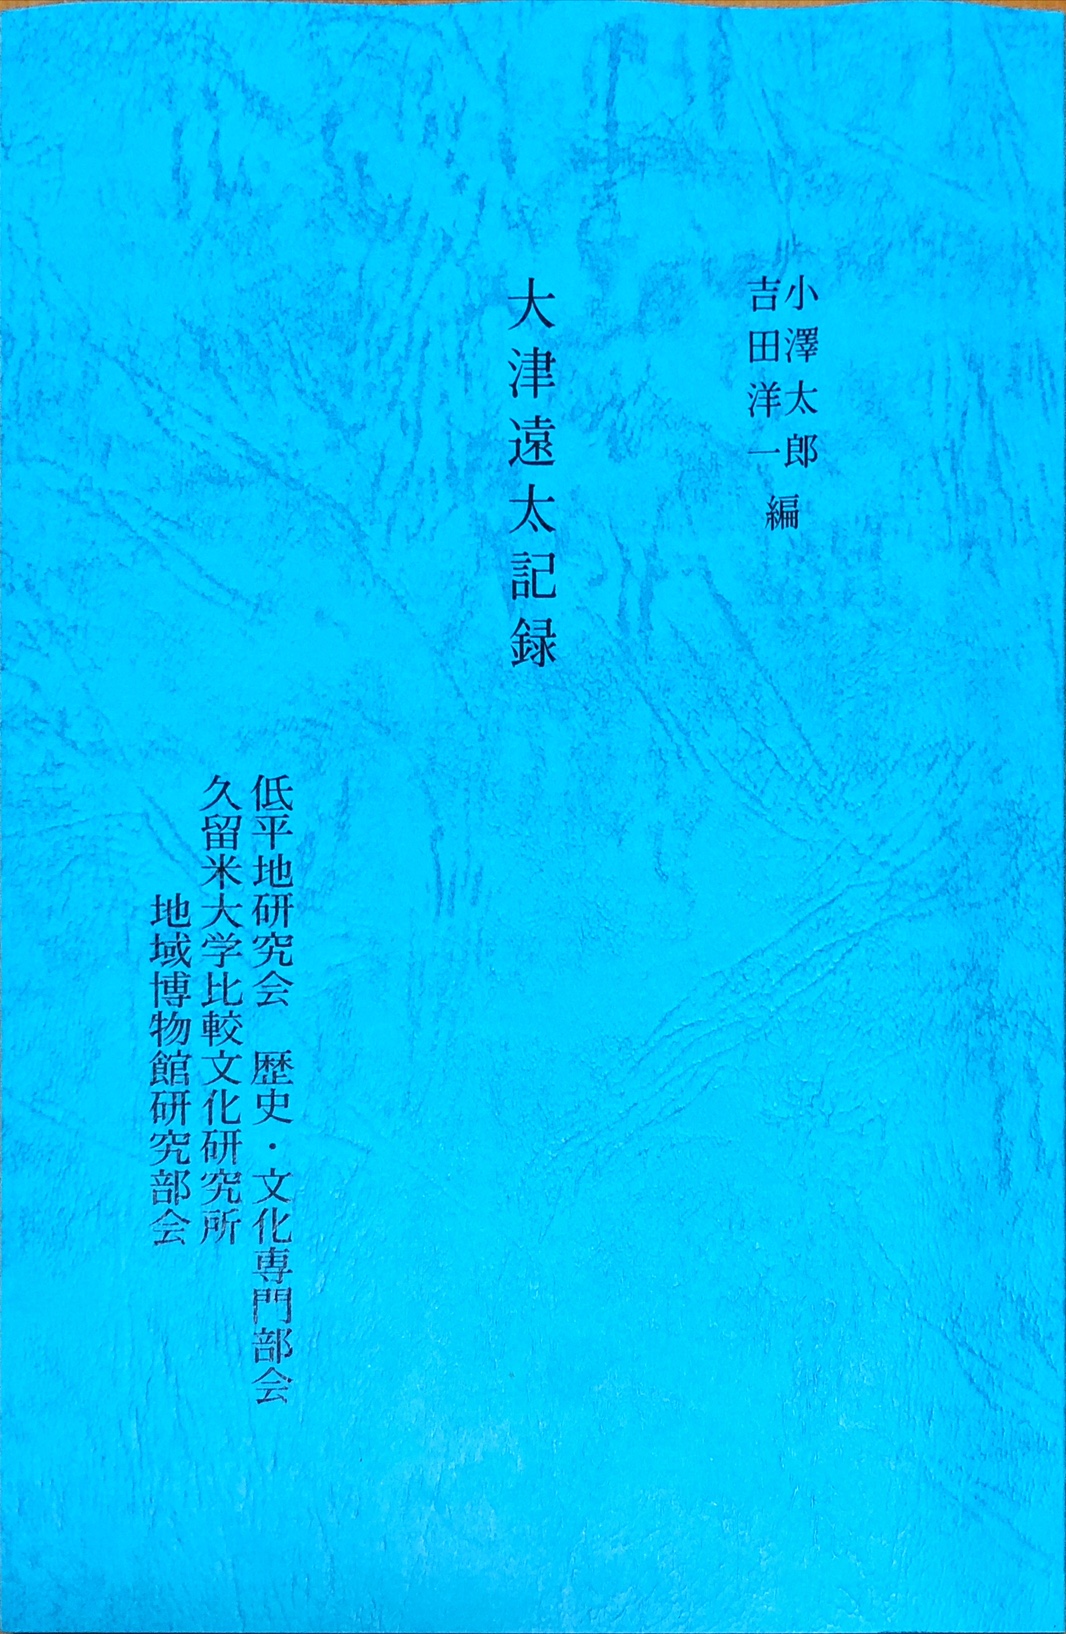 小澤太郎
吉田洋一
編
大津遠太記録
低平地研究会 歴史・文化専門部会
久留米大学比較文化研究所
地域博物館研究部会